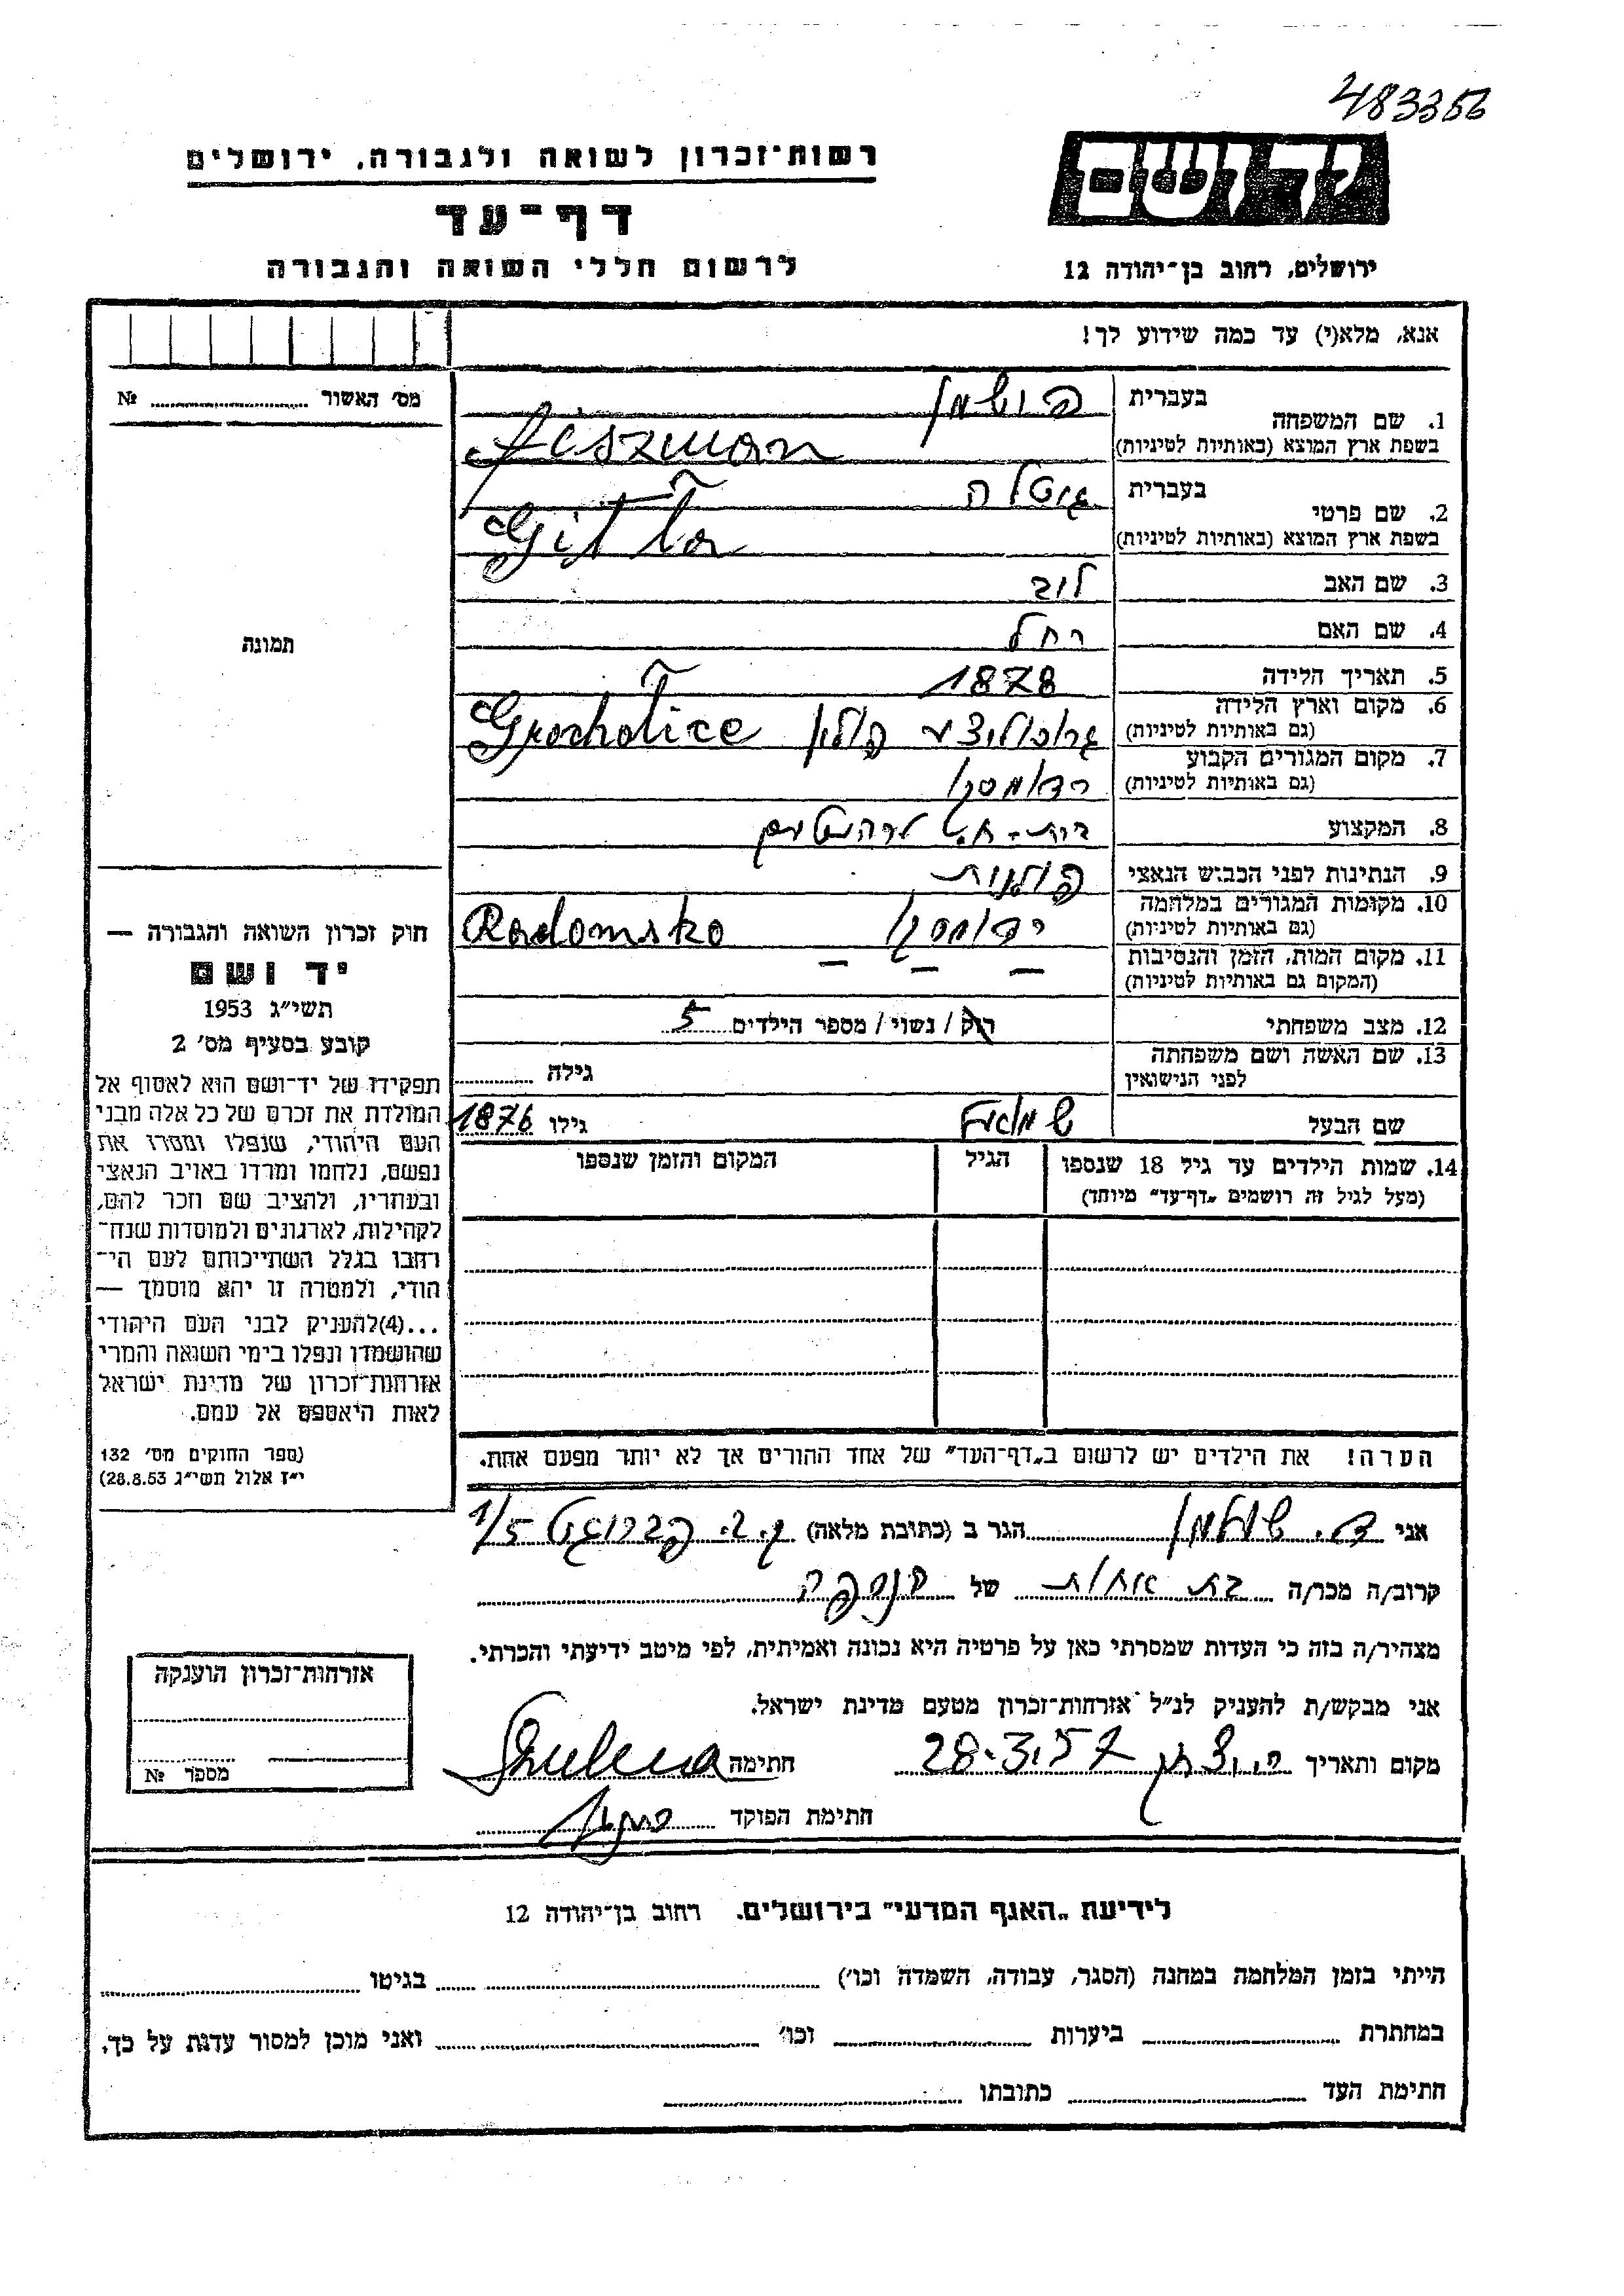 483356
רשות־זכרון לשואה ולגבורה, ירושלים
יד ושם
דף־עד
לרשום חללי השואה והגבורה
ירושלים, רחוב בן־יהודה 12
אנא, מלא(י) עד כמה שידוע לך!
מס׳ האשור № 
1. שם המשפחה
בעברית פישמן
בשפת ארץ המוצא (באותיות לטיניות) Fiszman
2. שם פרטי
בעברית גיטלה
בשפת ארץ המוצא (באותיות לטיניות) Gitla
3. שם האב לוב
4. שם האם רחל
תמונה
5. תאריך הלידה 1878
6. מקום וארץ הלידה
(גם באותיות לטיניות) פולין Grocholice
7. מקום המגורים הקבוע
(גם באותיות לטיניות) רדומסקו
8. המקצוע בית-
9. הנתינות לפני הכבוש הנאצי פולנית
10. מקומות המגורים במלחמה
(גם באותיות לטיניות) רדומסקו Radomsko
11. מקום המות, הזמן והנסיבות
(המקום גם באותיות לטיניות) — — —
12. מצב משפחתי רוק / נשוי / מספר הילדים 5
13. שם האשה ושם משפחתה
לפני הנישואין גילה
שם הבעל גילו 1876
14. שמות הילדים עד גיל 18 שנספו
(מעל לגיל זה רושמים „דף־עד״ מיוחד)
הגיל
המקום והזמן שנספו
הערה! את הילדים יש לרשום ב„דף־העד״ של אחד ההורים אך לא יותר מפעם אחת.
חוק זכרון השואה והגבורה —
יד ושם
תשי״ג 1953
קובע בסעיף מס׳ 2
תפקידו של יד־ושם הוא לאסוף אל
המולדת את זכרם של כל אלה מבני
העם היהודי, שנפלו ומסרו את
נפשם, נלחמו ומרדו באויב הנאצי
ובעוזריו, ולהציב שם וזכר להם,
לקהילות, לארגונים ולמוסדות שנח־
רבו בגלל השתייכותם לעם הי־
הודי, ולמטרה זו יהא מוסמך —
...(4)להעניק לבני העם היהודי
שהושמדו ונפלו בימי השואה והמרי
אזרחות־זכרון של מדינת ישראל
לאות היאספם אל עמם.
(ספר החוקים מס׳ 132
י״ז אלול תשי״ג 28.8.53)
אני שולמן הגר ב (כתובת מלאה) 1/5
קרוב/ה מכר/ה בת אחות של
מצהיר/ה בזה כי העדות שמסרתי כאן על פרטיה היא נכונה ואמיתית, לפי מיטב ידיעתי והכרתי.
אני מבקש/ת להעניק לנ״ל אזרחות־זכרון מטעם מדינת ישראל.
מקום ותאריך 28.3.57 חתימה
חתימת הפוקד
אזרחות־זכרון הוענקה
מספר №
לידיעת „האגף המדעי״ בירושלים. רחוב בן־יהודה 12
הייתי בזמן המלחמה במחנה (הסגר, עבודה, השמדה וכו׳) בגיטו
במחתרת ביערות וכו׳ ואני מוכן למסור עדות על כך.
חתימת העד כתובתו